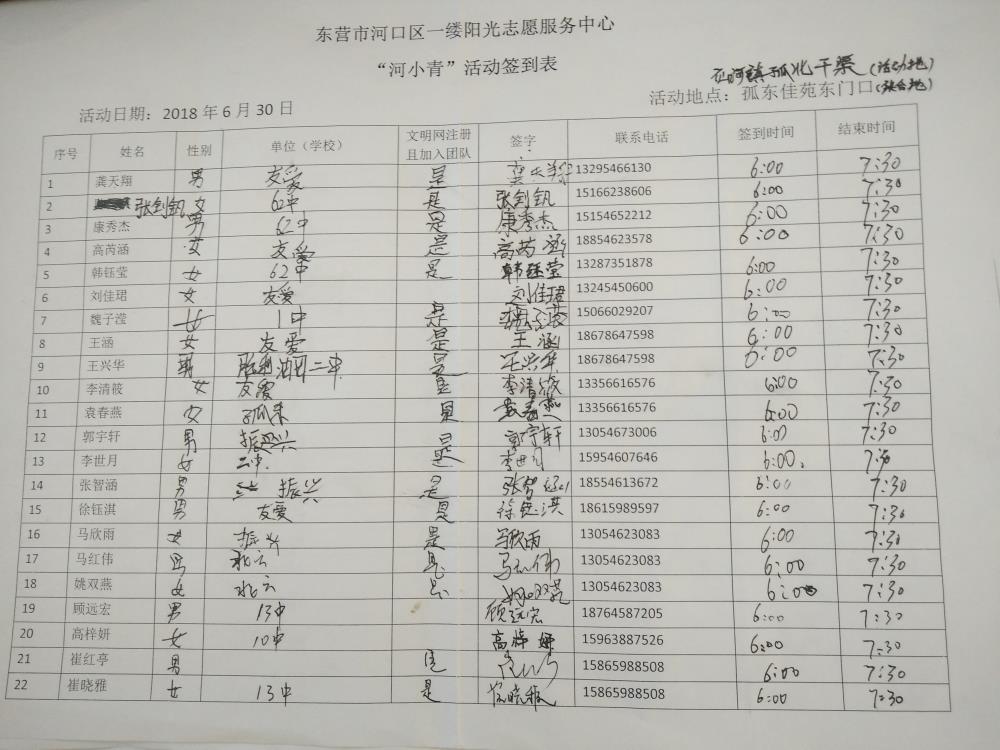 东营市河口区一缕阳光志愿服务中心
“河小青”活动签到表
孤北干渠(活动地)
活动日期：2018 年 6 月 30 日 活动地点：孤东佳苑东门口(集合地)
序号 姓名 性别 单位（学校） 文明网注册且加入团队 签字： 联系电话 签到时间 结束时间
1 龚天翔 男 友爱 是 龚天翔 13295466130 6:00 7:30
2 张剑钒 女 62中 是 张剑钒 15166238606 6:00 7:30
3 康秀杰 男 62中 是 康秀杰 15154652212 6:00 7:30
4 高芮涵 女 友爱 是 高芮涵 18854623578 6:00 7:30
5 韩钰莹 女 62中 是 韩钰莹 13287351878 6:00 7:30
6 刘佳珺 女 友爱 刘佳珺 13245450600 6:00 7:30
7 魏子滢 女 1中 是 魏子滢 15066029207 6:00 7:30
8 王涵 女 友爱 是 王涵 18678647598 6:00 7:30
9 王兴华 男 胜利油田二中 是 王兴华 18678647598 6:00 7:30
10 李清筱 女 友爱 是 李清筱 13356616576 6:00 7:30
11 袁春燕 女 孤东 是 袁春燕 13356616576 6:00 7:30
12 郭宇轩 男 振兴 是 郭宇轩 13054673006 6:00 7:30
13 李世月 女 二中 是 李世月 15954607646 6:00 7:30
14 张智涵 男 振兴 是 张智涵 18554613672 6:00 7:30
15 徐钰淇 男 友爱 是 徐钰淇 18615989597 6:00 7:30
16 马欣雨 女 振兴 是 马欣雨 13054623083 6:00 7:30
17 马红伟 男 是 马红伟 13054623083 6:00 7:30
18 姚双燕 女 是 姚双燕 13054623083 6:00 7:30
19 顾远宏 男 13中 顾远宏 18764587205 6:00 7:30
20 高梓妍 女 10中 高梓妍 15963887526 6:00 7:30
21 崔红亭 男 是 15865988508 6:00 7:30
22 崔晓雅 女 13中 是 崔晓雅 15865988508 6:00 7:30